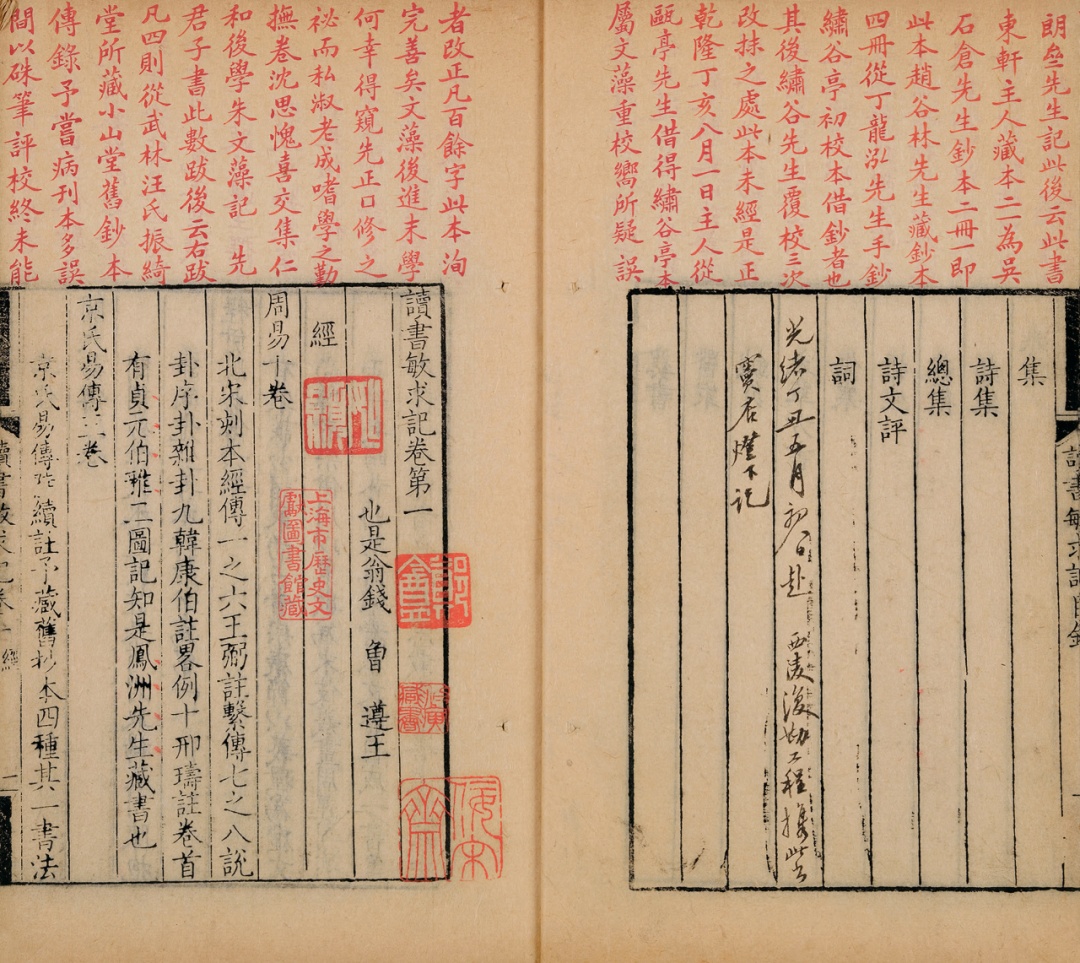 朗夆先生記此後云此書
東軒主人藏本二一為吳
石倉先生鈔本二冊一即
此本趙谷林先生藏鈔本
四冊從丁龍泓先生手鈔
繡谷亭初校本借鈔者也
其後繡谷先生覆校三次
改抹之處此本未經是正
乾隆丁亥八月一日主人從
甌亭先生借得繡谷亭本
屬文藻重校嚮所疑誤
集
詩集
總集
詩文評
詞
光緒丁丑五月初 日赴西陵復勘工程攜此書
賣店燈下記
讀書敏求記目錄
者改正凡百餘字此本洵
完善矣文藻後進末學
何幸得窺先正口修之
祕而私淑老成嗜學之勤
撫卷沈思愧喜交集仁
和後學朱文藻記 先
君子書此數跋後云右跋
凡四則從武林汪氏振綺
堂所藏小山堂舊鈔本
傳錄予嘗病刊本多誤
間以硃筆評校終未能
讀書敏求記卷第一
也是翁錢 曾 遵王
經
周易十卷
北宋刻本經傳一之六王弼註繫傳七之八說
卦序卦雜卦九韓康伯註畧例十邢璹註卷首
有貞元伯雅二圖記知是鳳洲先生藏書也
京氏易傳三卷
京氏易傳陸績註予藏舊抄本四種其一書法
讀書敏求記卷一 經
一
上海市歷史文
獻圖書館藏